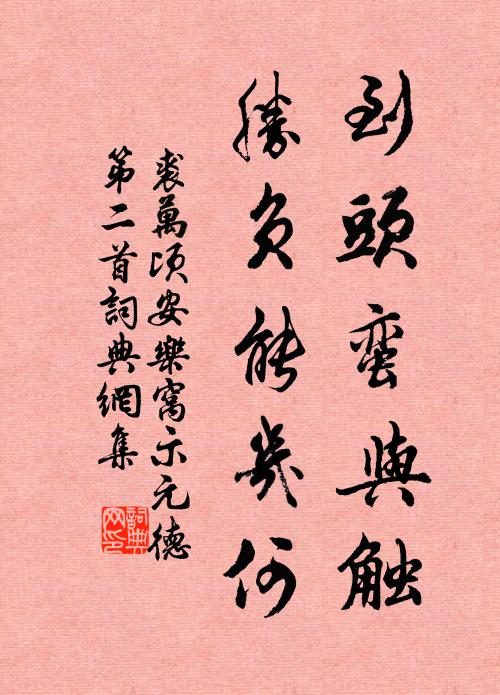 到頭蛮與触
勝負能幾何
裘萬頃安樂窩示元德
第二首詞典網集
詞典网印